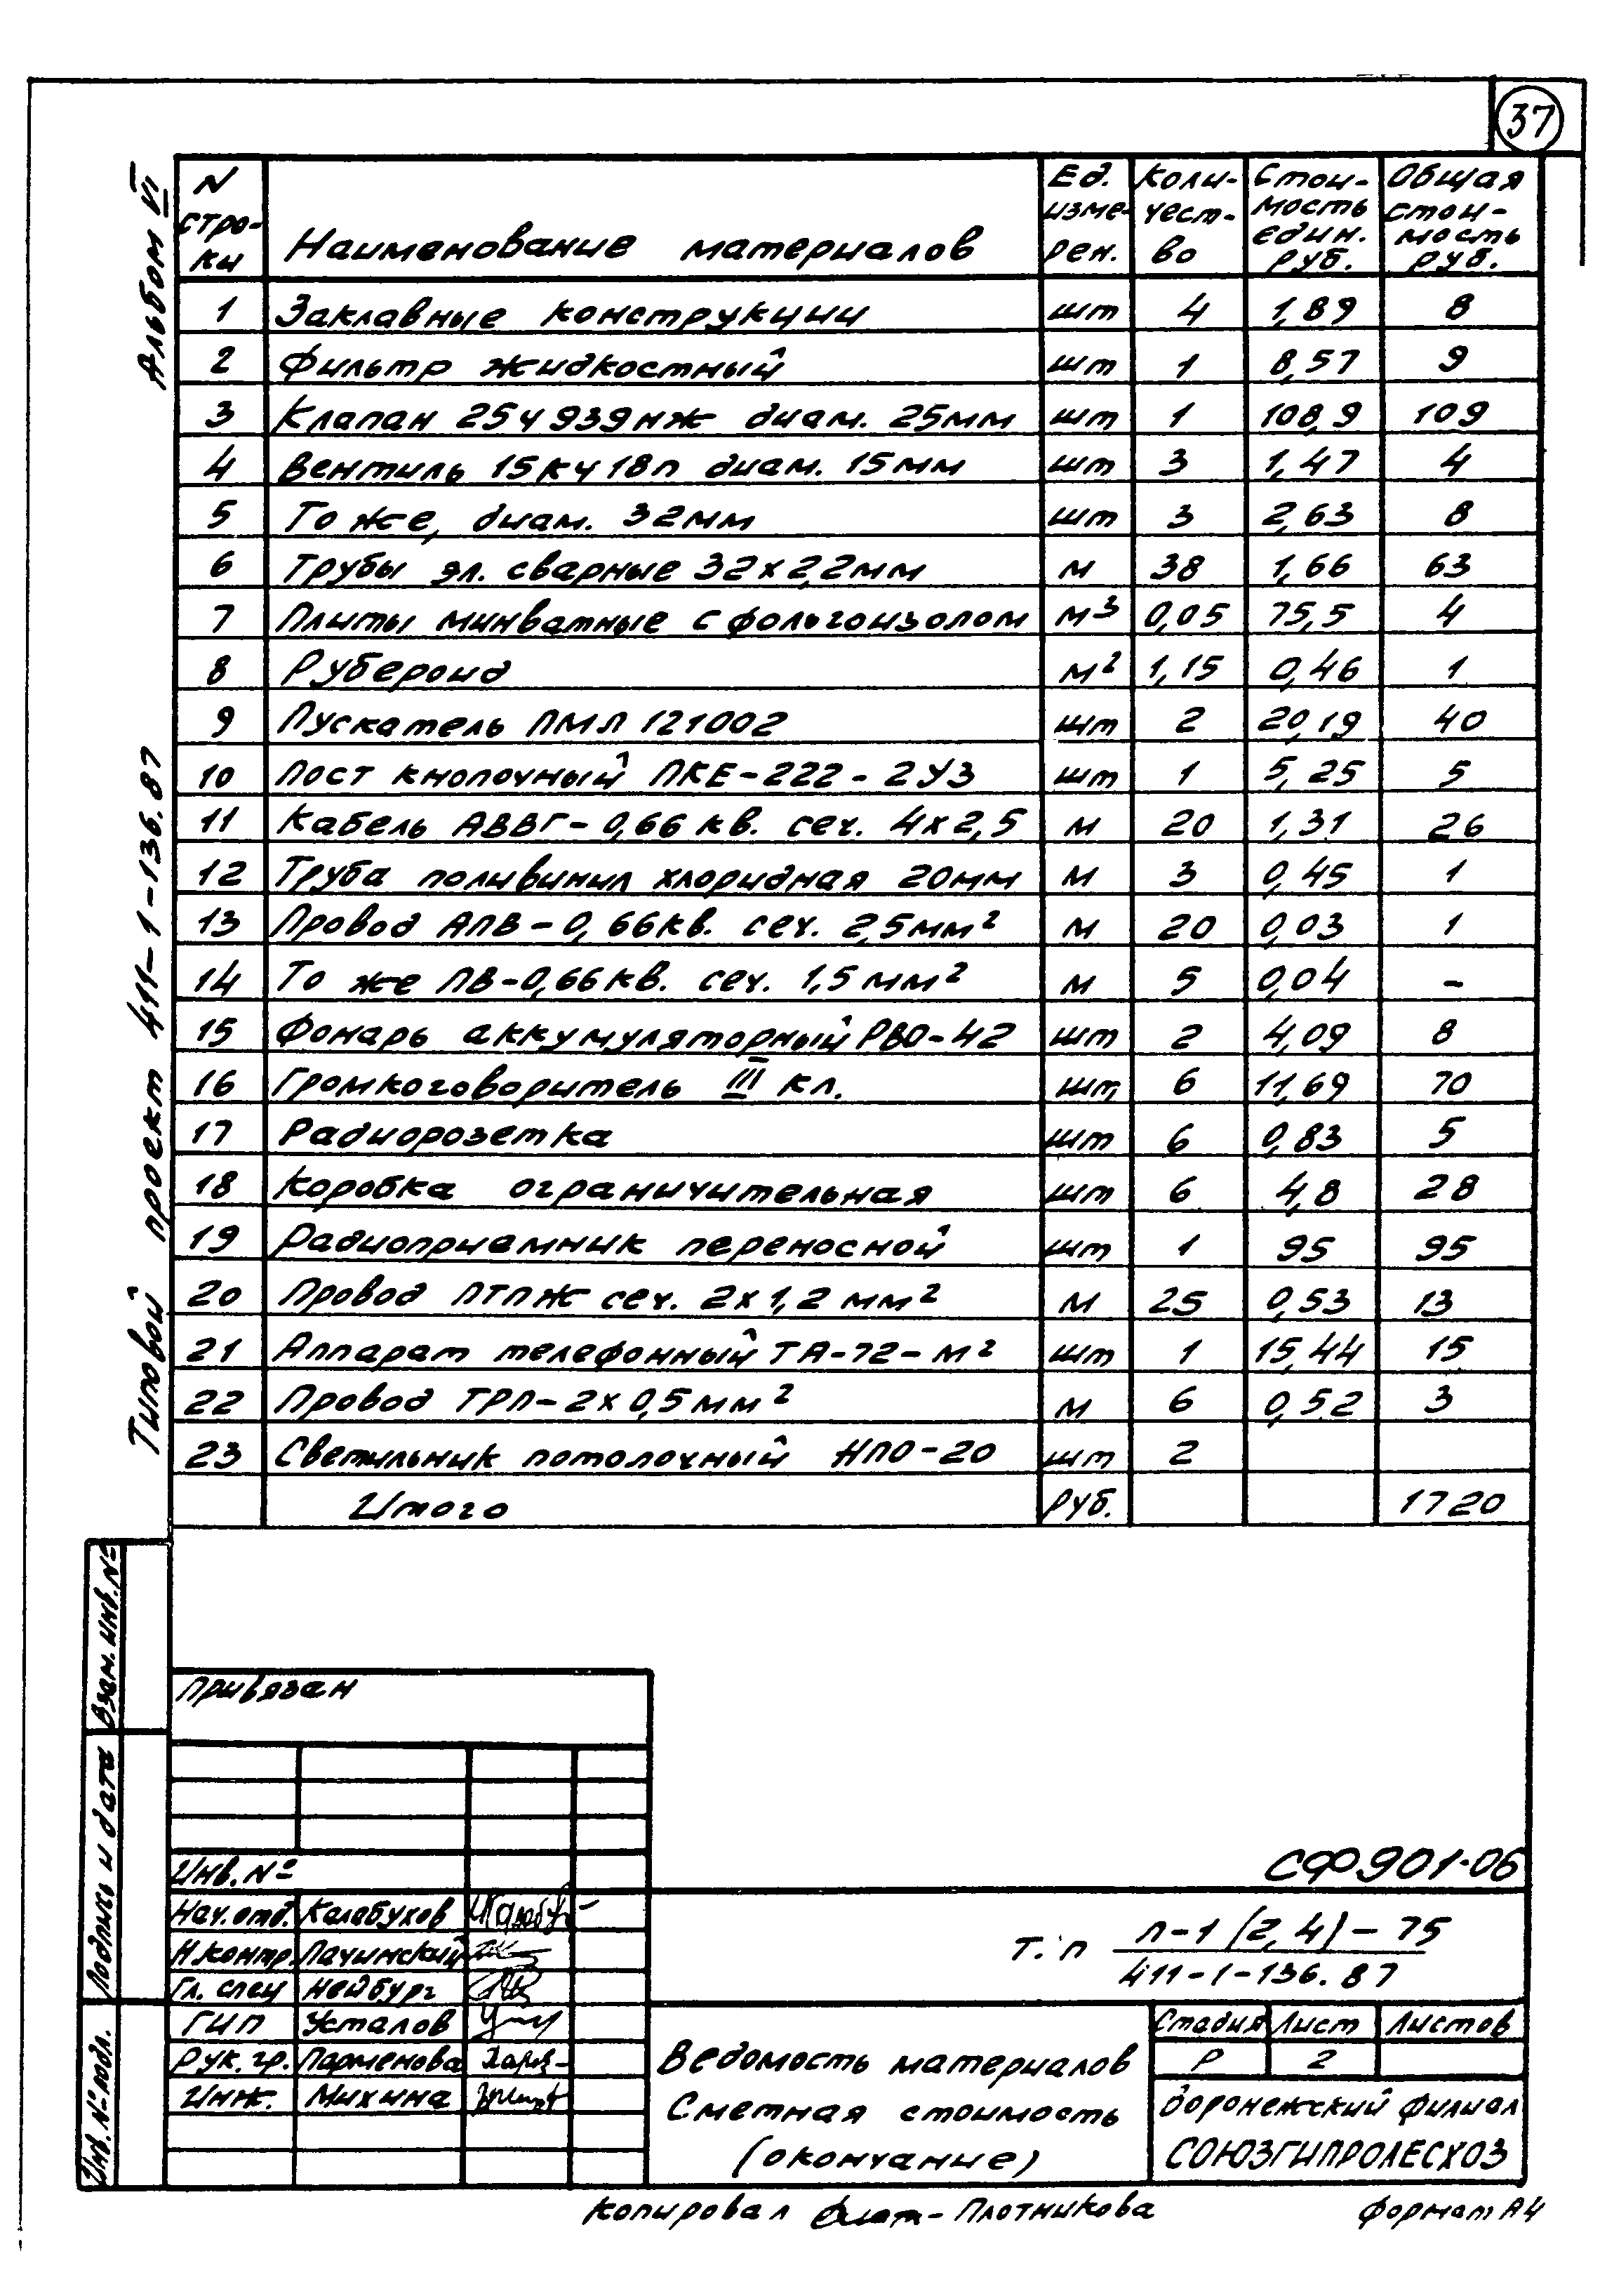 37
Альбом VI
Типовой проект 411-1-136.87
N строки | Наименование материалов | Ед. измерен. | Количество | Стоимость един. руб. | Общая стоимость руб.
1 | Закладные конструкции | шт | 4 | 1,89 | 8
2 | Фильтр жидкостный | шт | 1 | 8,57 | 9
3 | Клапан 25ч939нж диам. 25мм | шт | 1 | 108,9 | 109
4 | Вентиль 15кч18п диам. 15мм | шт | 3 | 1,47 | 4
5 | То же, диам. 32мм | шт | 3 | 2,63 | 8
6 | Трубы эл. сварные 32х2,2мм | м | 38 | 1,66 | 63
7 | Плиты минватные с фольгоизолом | м³ | 0,05 | 75,5 | 4
8 | Рубероид | м² | 1,15 | 0,46 | 1
9 | Пускатель ПМЛ 121002 | шт | 2 | 20,19 | 40
10 | Пост кнопочный ПКЕ-222-2У3 | шт | 1 | 5,25 | 5
11 | Кабель АВВГ-0,66 кв. сеч. 4х2,5 | м | 20 | 1,31 | 26
12 | Труба поливинил хлоридная 20мм | м | 3 | 0,45 | 1
13 | Провод АПВ-0,66кв. сеч. 2,5мм² | м | 20 | 0,03 | 1
14 | То же ПВ-0,66кв. сеч. 1,5мм² | м | 5 | 0,04 | -
15 | Фонарь аккумуляторный РВО-42 | шт | 2 | 4,09 | 8
16 | Громкоговоритель III кл. | шт | 6 | 11,69 | 70
17 | Радиорозетка | шт | 6 | 0,83 | 5
18 | Коробка ограничительная | шт | 6 | 4,8 | 28
19 | Радиоприемник переносной | шт | 1 | 95 | 95
20 | Провод ПТПЖ сеч. 2х1,2 мм² | м | 25 | 0,53 | 13
21 | Аппарат телефонный ТА-72-м² | шт | 1 | 15,44 | 15
22 | Провод ТРП-2х0,5мм² | м | 6 | 0,52 | 3
23 | Светильник потолочный НПО-20 | шт | 2
Итого | руб. | 1720
Взам. инв. №
Подпись и дата
Инв. № подл.
Привязан
Инв. №
СФ901-06
Нач. отд. Калабухов
Н. контр. Пачинский
Гл. спец Нейбург
ГИП Усталов
Рук. гр. Парменова
Инж. Михина
т. п п-1 (2,4)-75
411-1-136.87
Ведомость материалов
Сметная стоимость
(окончание)
Стадия Лист Листов
Р 2
Воронежский филиал
СОЮЗГИПРОЛЕСХОЗ
Копировал Плотникова
Формат А4